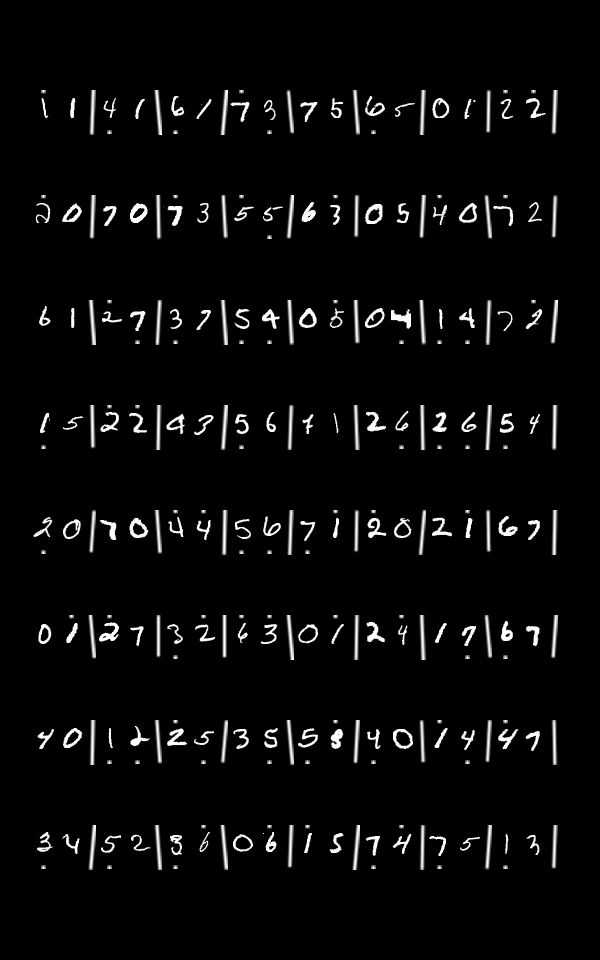 1̇ 1 | 4̣ 1 | 6̣ 1 | 7̇ 3̣ | 7 5 | 6̣ 5 | 0 1 | 2̇ 2̇ |
2̇ 0 | 7 0 | 7̇ 3 | 5̇ 5̣ | 6 3̇ | 0 5 | 4̇ 0 | 7̇ 2 |
6 1 | 2̇ 7̣ | 3̣ 7 | 5̣ 4̣ | 0 5̇ | 0 4̣ | 1̣ 4̣ | 7 2̇ |
1̣ 5 | 2̇ 2̇ | 4 3 | 5̣ 6 | 7 1 | 2 6̣ | 2̣ 6̣ | 5̣ 4 |
2̣ 0 | 7 0 | 4̇ 4̇ | 5̣ 6̣ | 7̣ 1̇ | 2̇ 0 | 2 1̇ | 6 7 |
0 1̇ | 2̇ 7 | 3̣ 2̇ | 6̇ 3̇ | 0 1̇ | 2 4̇ | 1 7̣ | 6̣ 7 |
4 0 | 1̣ 2̣ | 2̇ 5̣ | 3 5̣ | 5 3̇ | 4̣ 0 | 1̇ 4̣ | 4̇ 7 |
3̣ 4 | 5̣ 2 | 3̣ 6̇ | 0 6̇ | 1̇ 5 | 7̣ 4̇ | 7̣ 5 | 1̣ 3 |